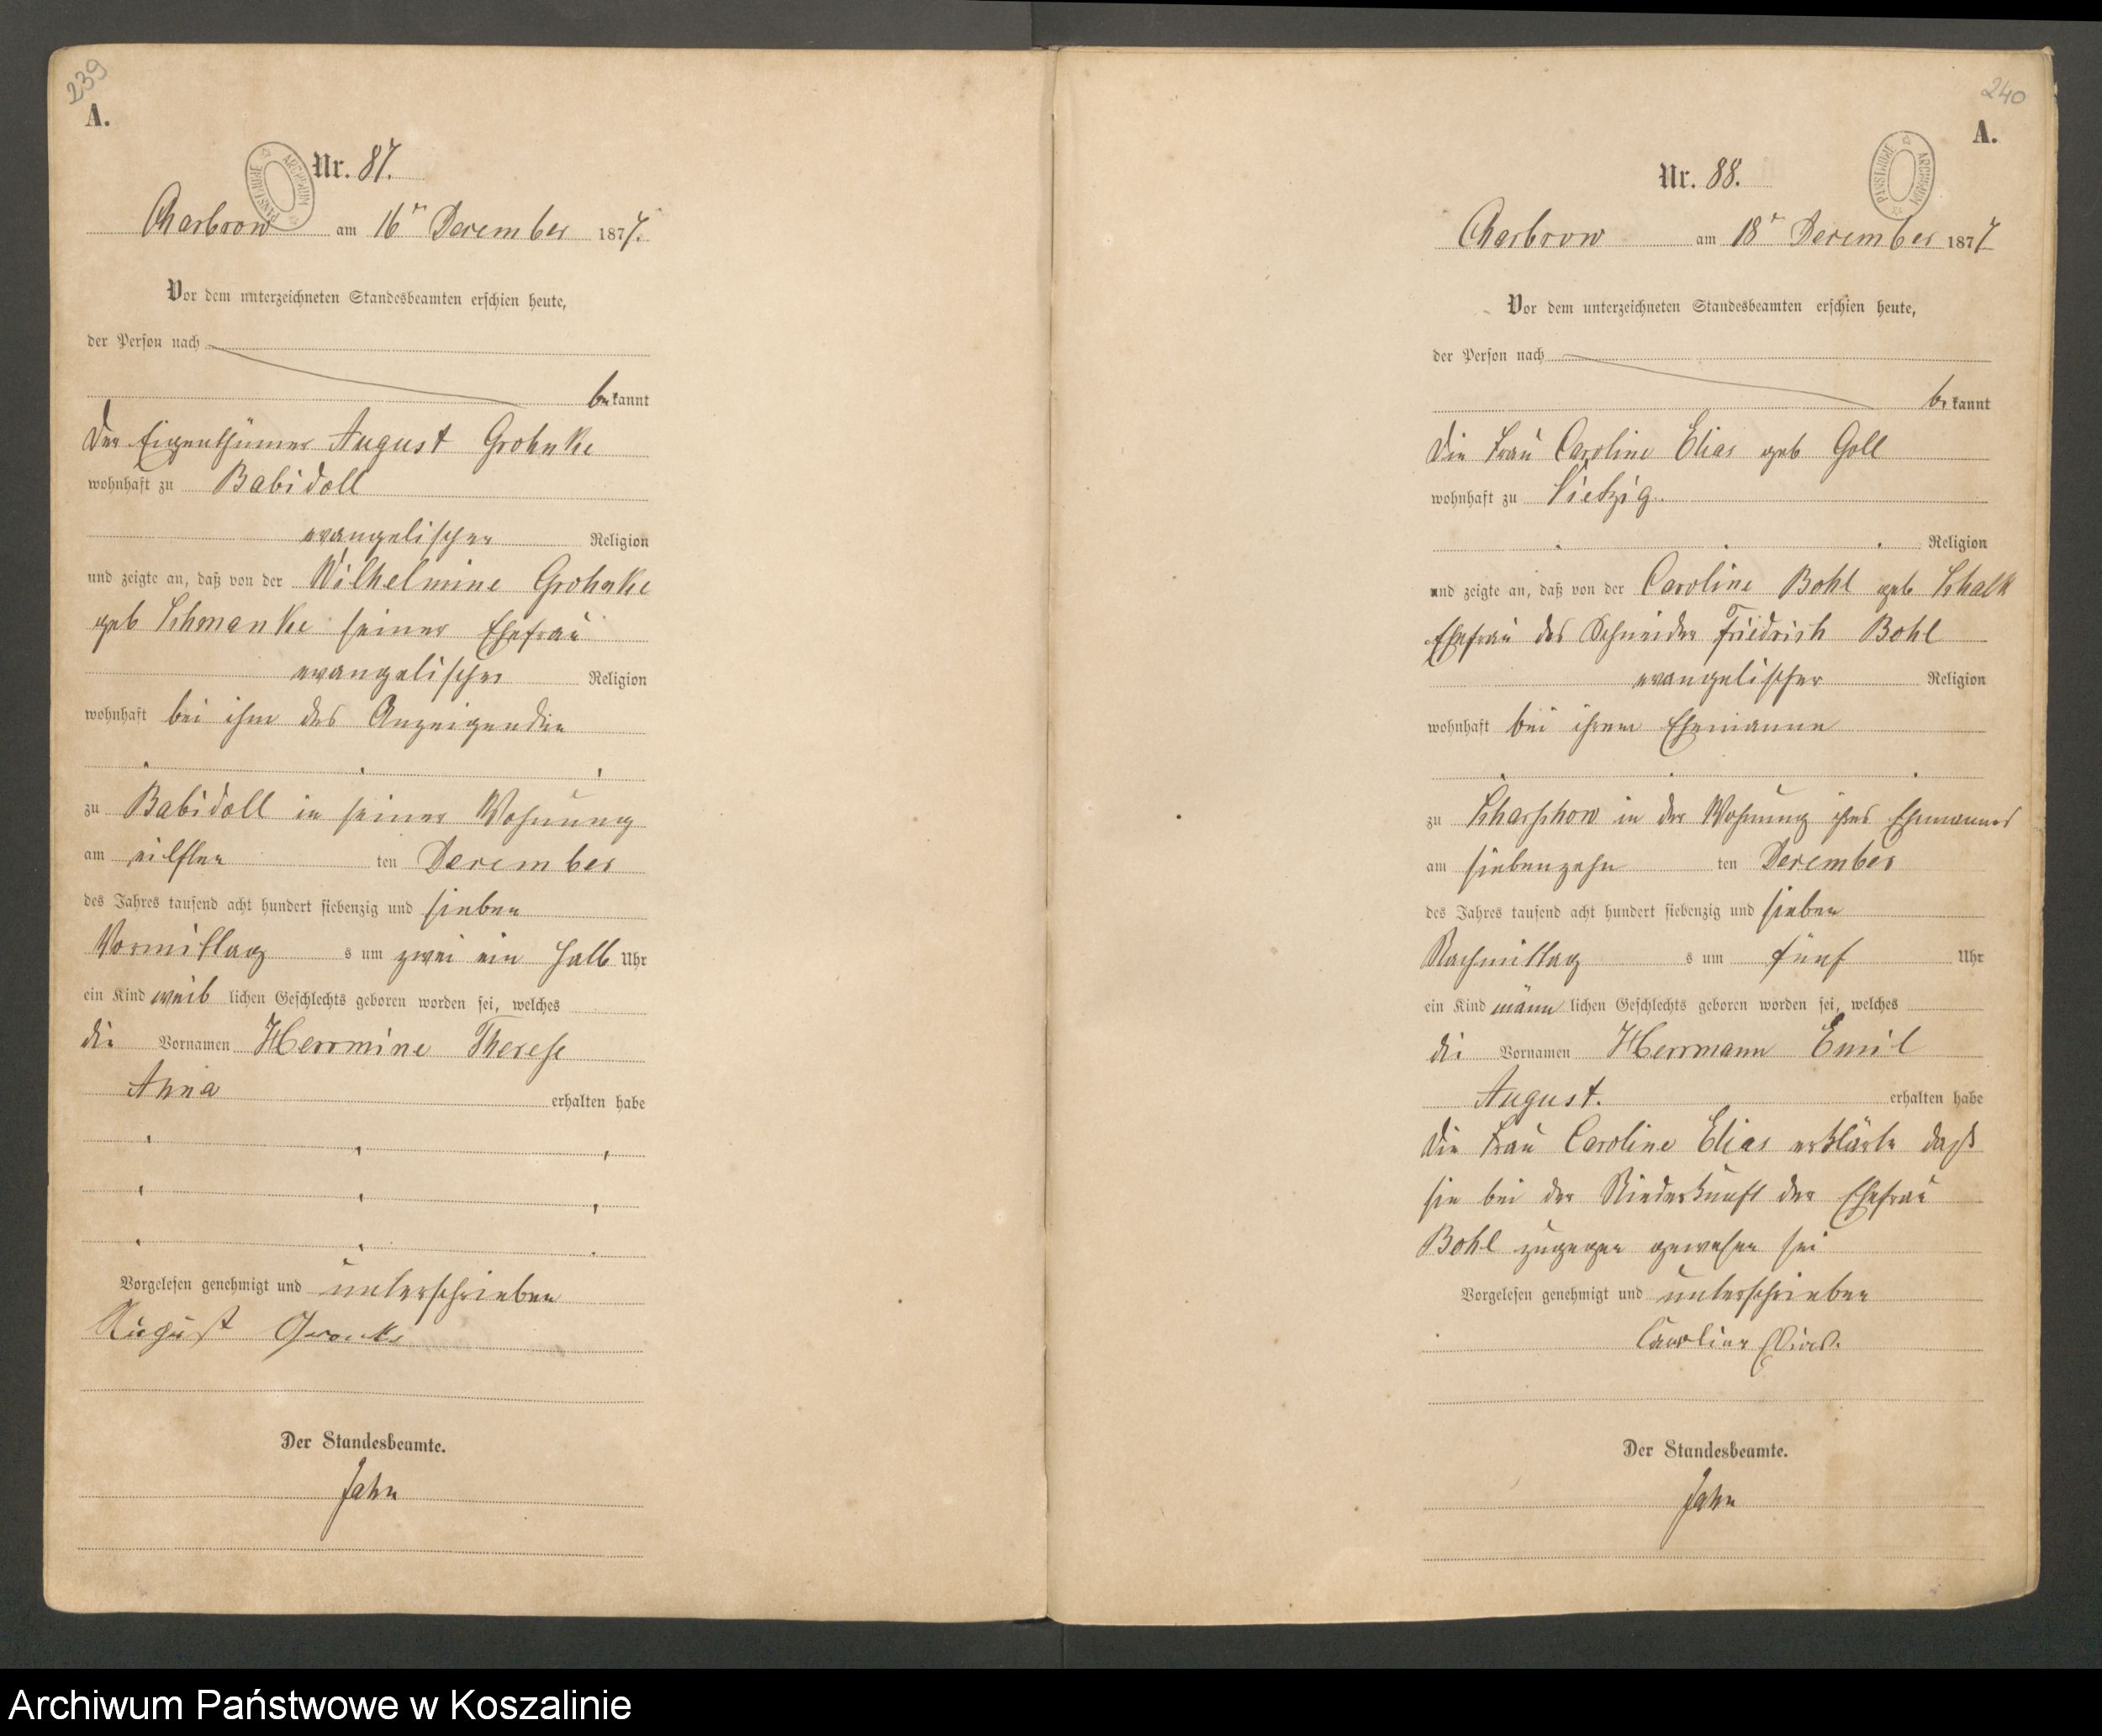 239
A.
Nr. 87.
Charbrow am 16ᵗ December 1877.
Vor dem unterzeichneten Standesbeamten erschien heute,
der Person nach
bekannt
Der Eigenthümer August Grohnke
wohnhaft zu Babidoll
evangelischer Religion
und zeigte an, daß von der Wilhelmine Grohnke
geb Schmanke seiner Ehefrau
evangelischer Religion
wohnhaft bei ihm des Anzeigenden
zu Babidoll in seiner Wohnung
am eilften ten December
des Jahres tausend acht hundert siebenzig und sieben
Vormittag s um zwei ein halb Uhr
ein Kind weib lichen Geschlechts geboren worden sei, welches
die Vornamen Herrmine Therese
Anna erhalten habe
Vorgelesen genehmigt und unterschrieben
August
Der Standesbeamte.
Jahn
240
A.
PAŃSTWOWE ARCHIWUM
Nr. 88.
Charbrow am 18ᵗ December 1877
Vor dem unterzeichneten Standesbeamten erschien heute,
der Person nach
bekannt
Die Frau Caroline Elias geb Goll
wohnhaft zu Vietzig.
Religion
und zeigte an, daß von der Caroline Bohl geb Schalk
Ehefrau des Schneider Friedrich Bohl
evangelischer Religion
wohnhaft bei ihrem Ehemanne
zu Scharschow in der Wohnung ihres Ehemannes
am siebenzehn ten December
des Jahres tausend acht hundert siebenzig und sieben
Nachmittag s um fünf Uhr
ein Kind männ lichen Geschlechts geboren worden sei, welches
die Vornamen Herrmann Emil
August. erhalten habe
Die Frau Caroline Elias erklärte daß
sie bei der Niederkunft der Ehefrau
Bohl zugegen gewesen sei
Vorgelesen genehmigt und unterschrieben
Caroline Elias.
Der Standesbeamte.
Jahn
Archiwum Państwowe w Koszalinie